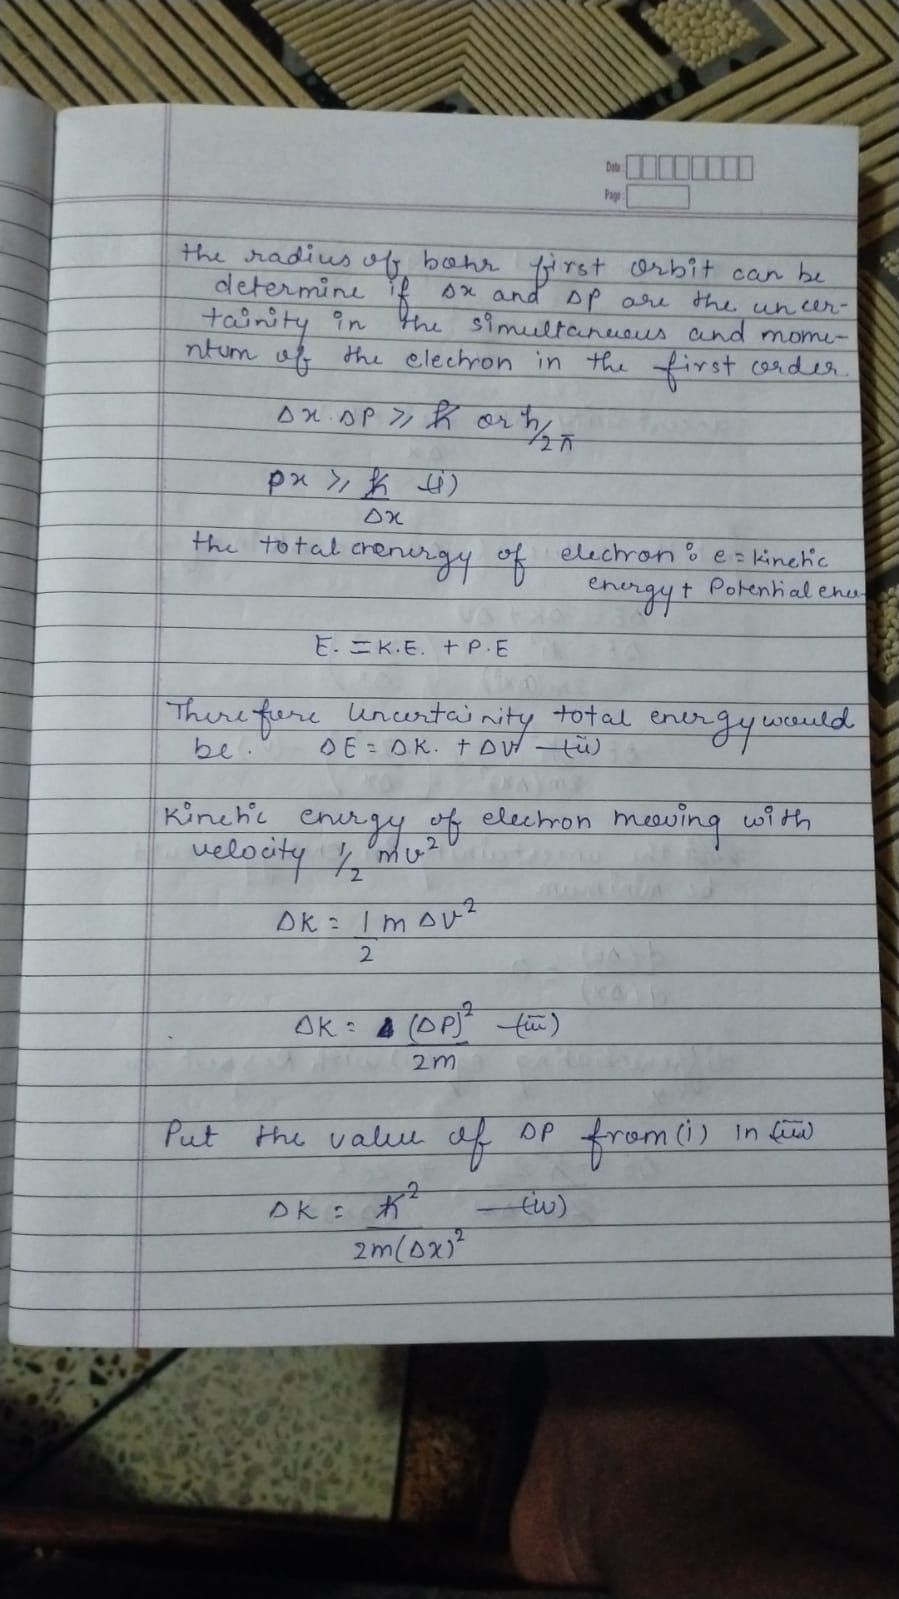 Date:
Page:
the radius off bohr first orbit can be
determine if Δx and ΔP are the uncer-
tainity in the simultanueus and mome-
ntum of the electron in the first order
Δx.ΔP ≥ ħ or h/2π
px ≥ ħ/Δx (i)
the total of electron : e = kinetic
energy + Potential ene
E. = K.E. + P.E
Therefore Uncertainity total energy would
be. ΔE = ΔK. + ΔV —(ii)
Kinetic energy of electron mooving with
velocity 1/2 mv²
ΔK = 1/2 m Δv²
ΔK = (ΔP)²/2m —(iii)
Put the value of ΔP from (i) in (iii)
ΔK = ħ²/2m(Δx)² —(iv)